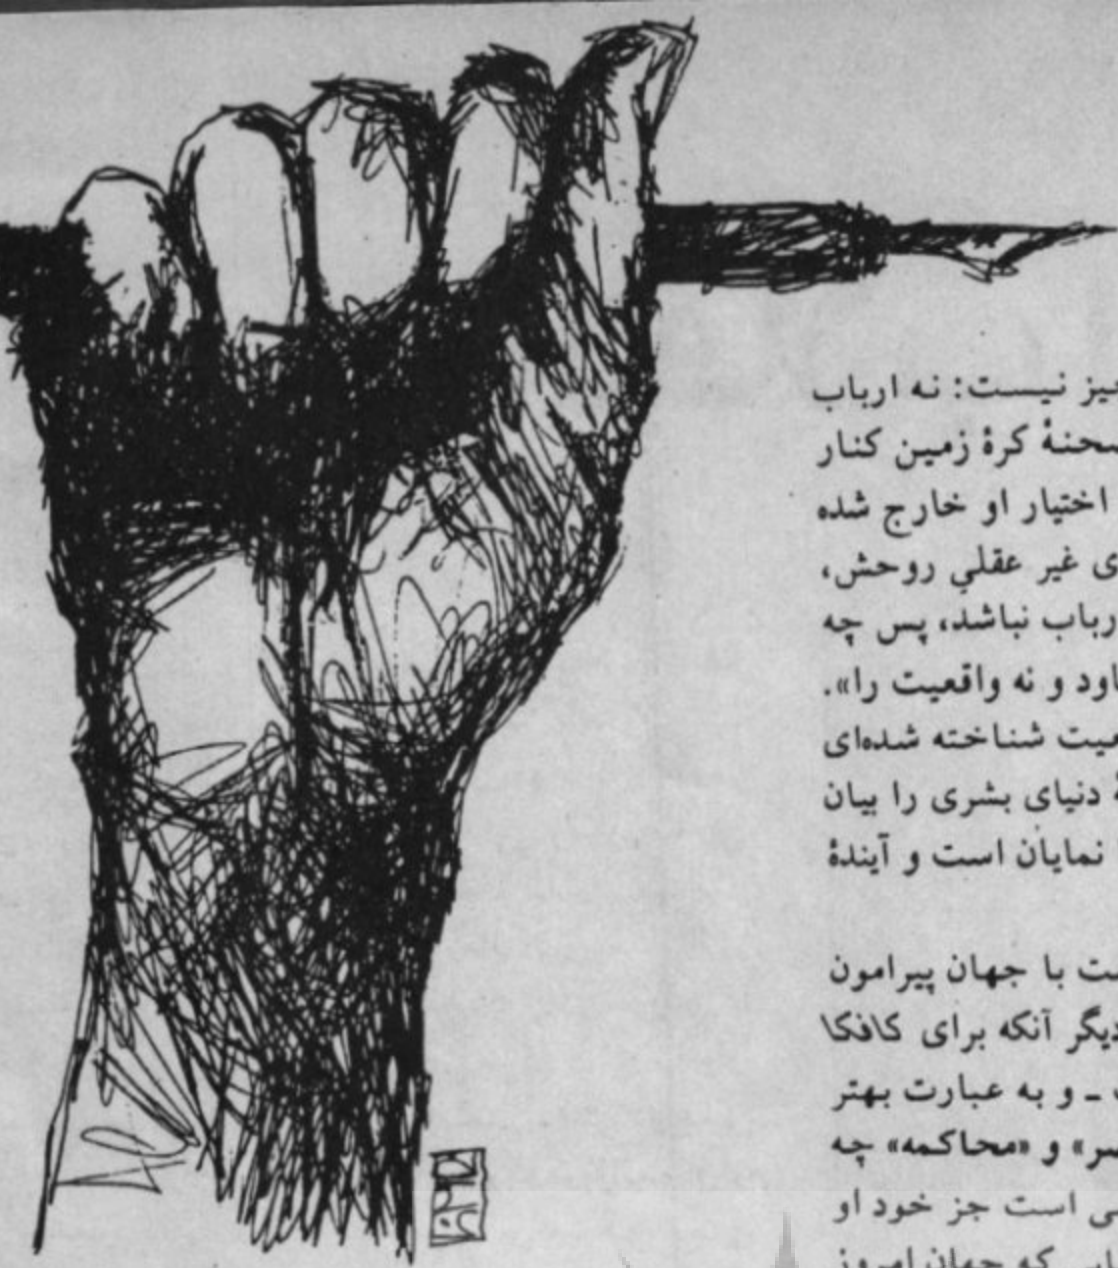 نیست: نه ارباب
کرهٔ زمین کنار
اختیار او خارج شده
غیر عقلیِ روحش،
نباشد، پس چه
و نه واقعیت را».
شناخته شده‌ای
دنیای بشری را بیان
نمایان است و آیندهٔ
با جهان پیرامون
دیگر آنکه برای کافکا
ـ و به عبارت بهتر
و «محاکمه» چه
است جز خود او
که جهان امروز